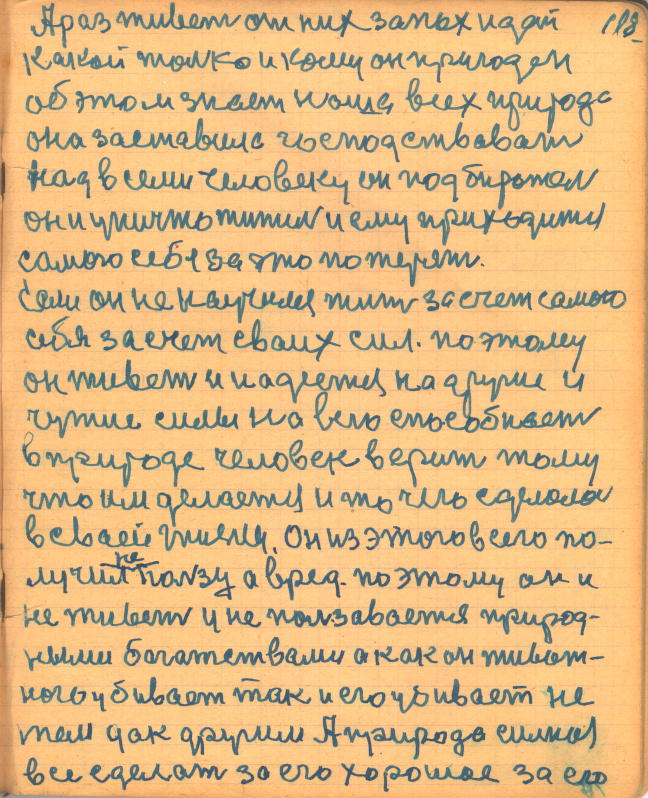 А раз живет от них запах идет 118
какой толко и кому он пригоден
об этом знает наша всех природа
она заставила господствоват
над всеми человеку он подбиратся
он и уничтожитил и ему приходится
самого себя за это потерят.
Если он не научился жит за счет самого
себя за счет сваих сил. поэтому
он живет и надеется на другие и
чужие силы на
в природе человек верит тому
что им делается и то чего сделала
в сваей жизни. Он из этого всего по-
не
лучил ползу а вред. поэтому он и
не живет и не ползавается природ-
ными богатствами а как он живот-
ного убивает так и его убивает не
тем дак другим А природа силная
все сделат за его хорошое за его